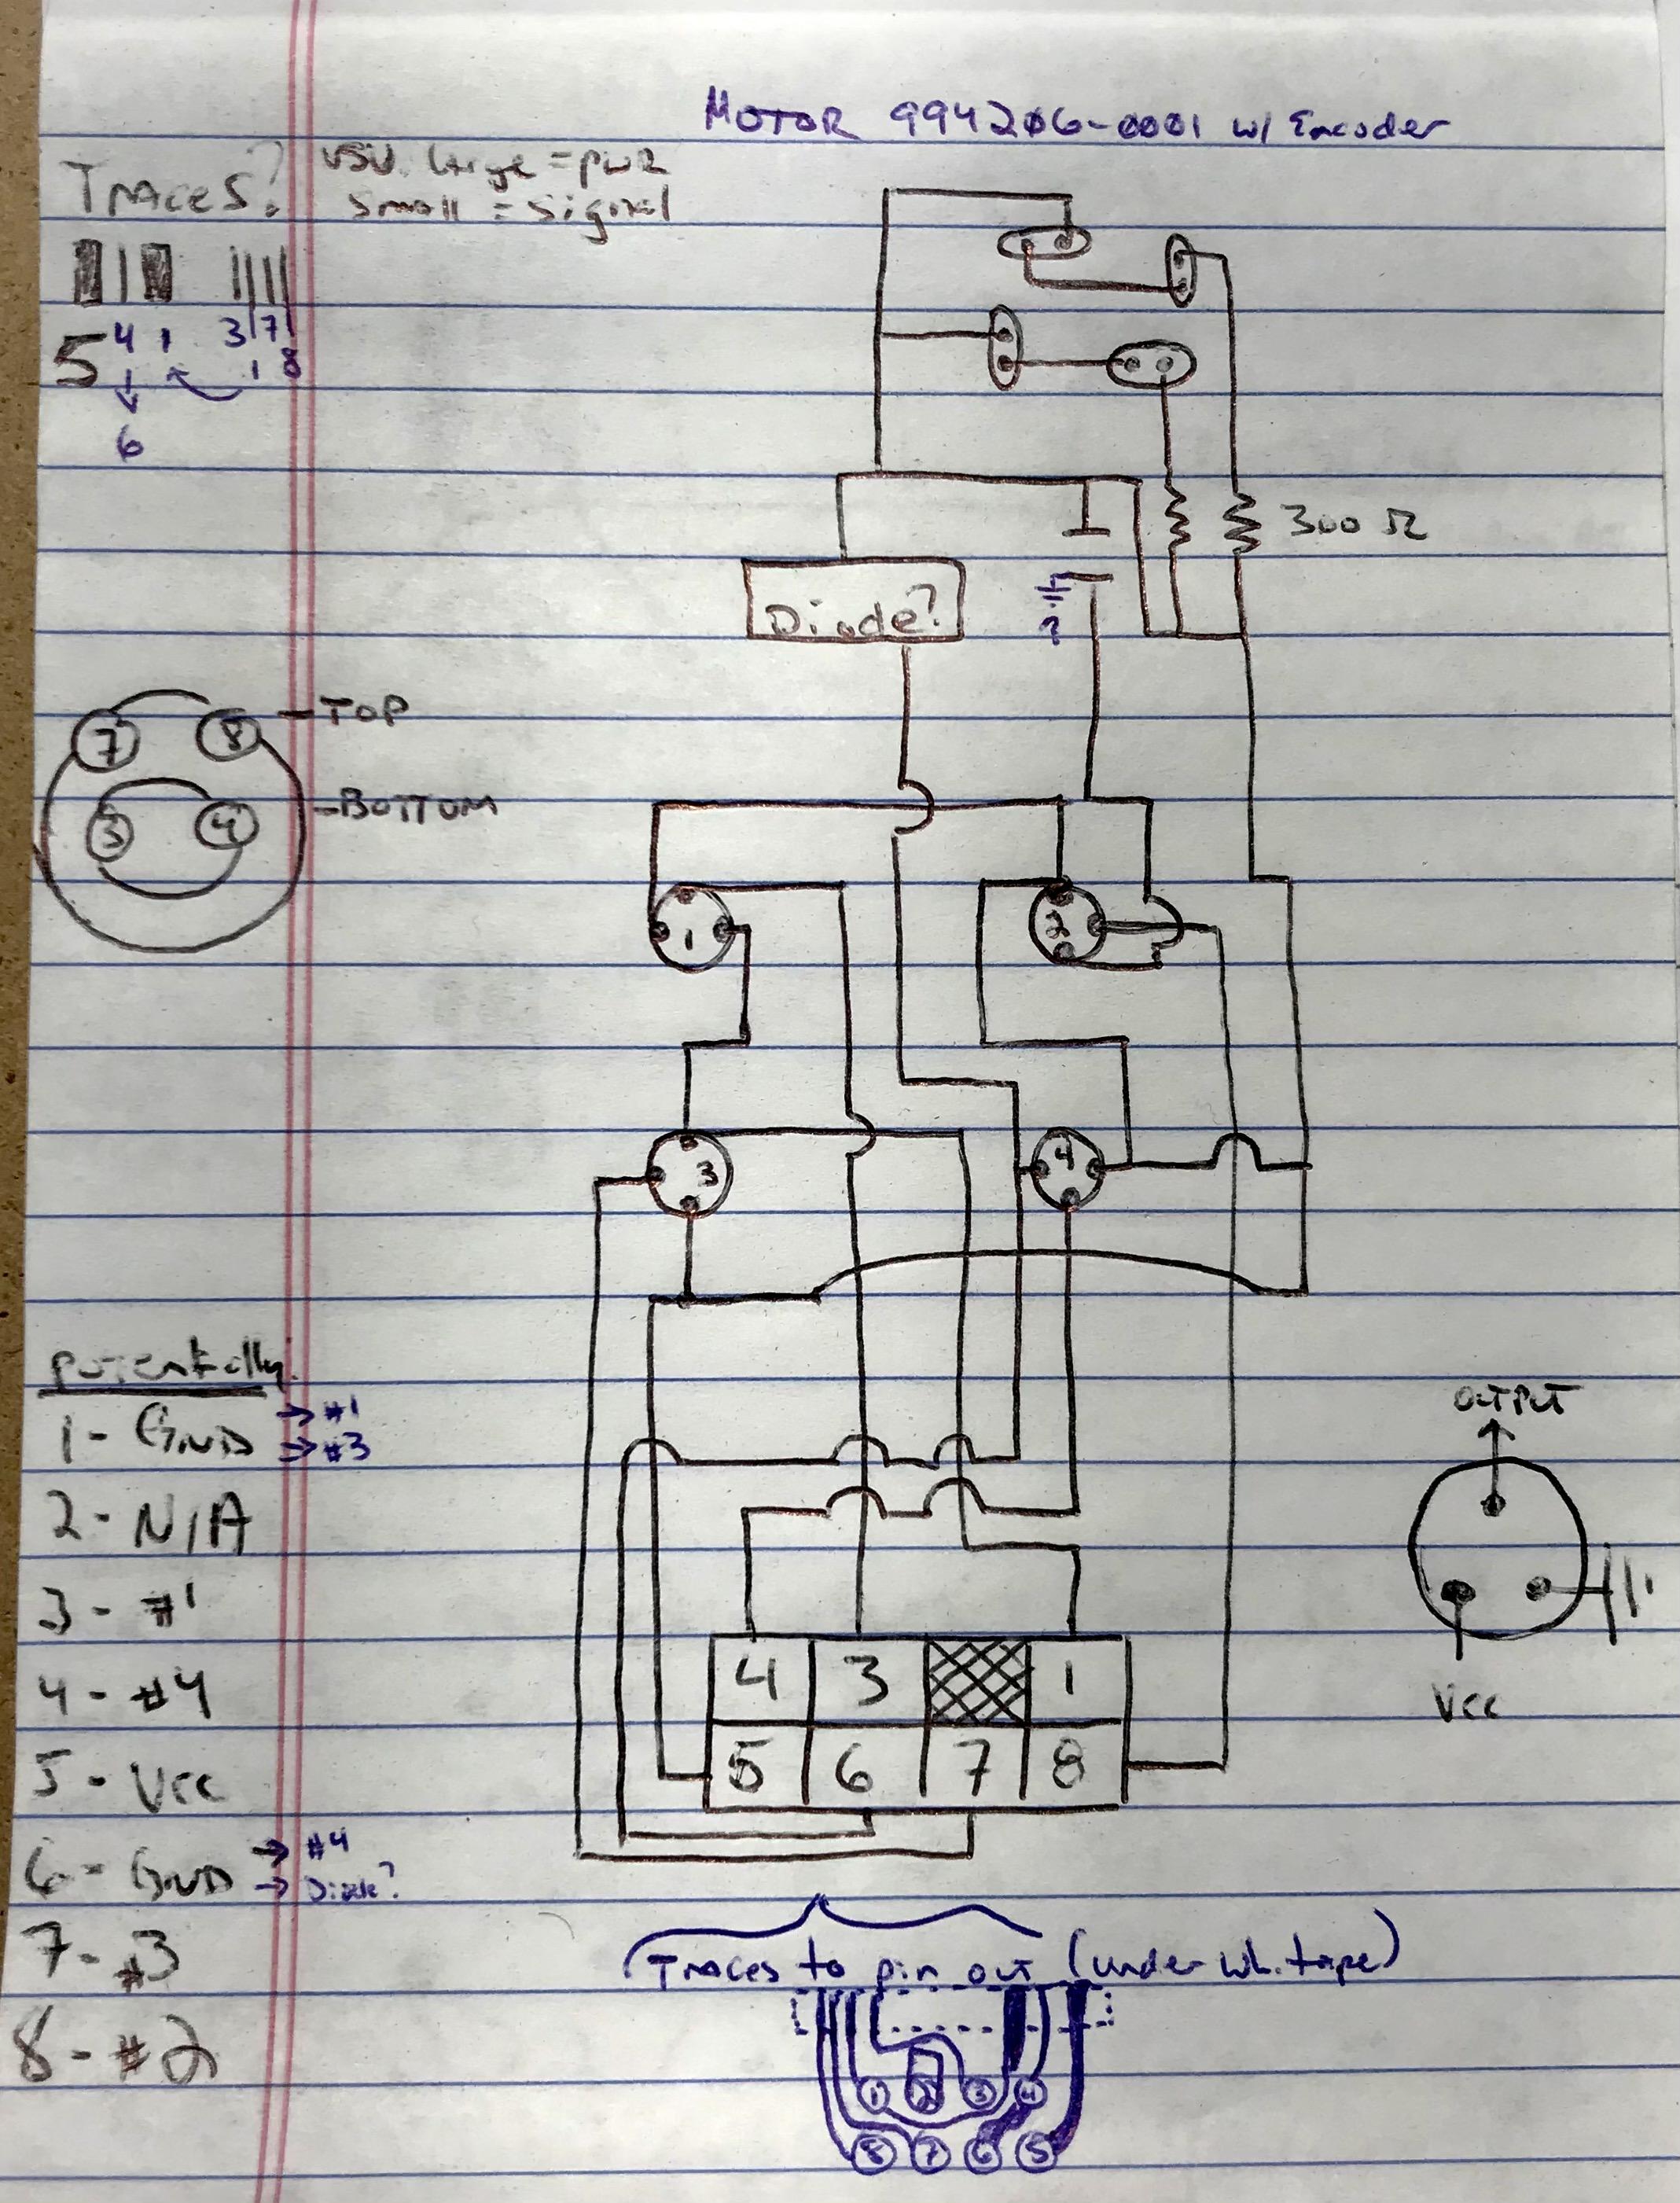 MOTOR 994206-0001 w/ Encoder
TRACES? USU. Large = PWR
Small = Signal
5 4 1 3 1 7 8
6
300 Ω
Diode?
?
7 8 - TOP
3 4 - BOTTOM
1 2
3 4
Potentially:
1 - GND → #1
→ #3
2 - N/A
3 - #1
4 - #4
5 - Vcc
6 - GND → #4
→ Diode?
7 - #3
8 - #2
OUTPUT
Vcc
4 3 1
5 6 7 8
Traces to pin out (under wh. tape)
1 2 3 4
8 7 6 5